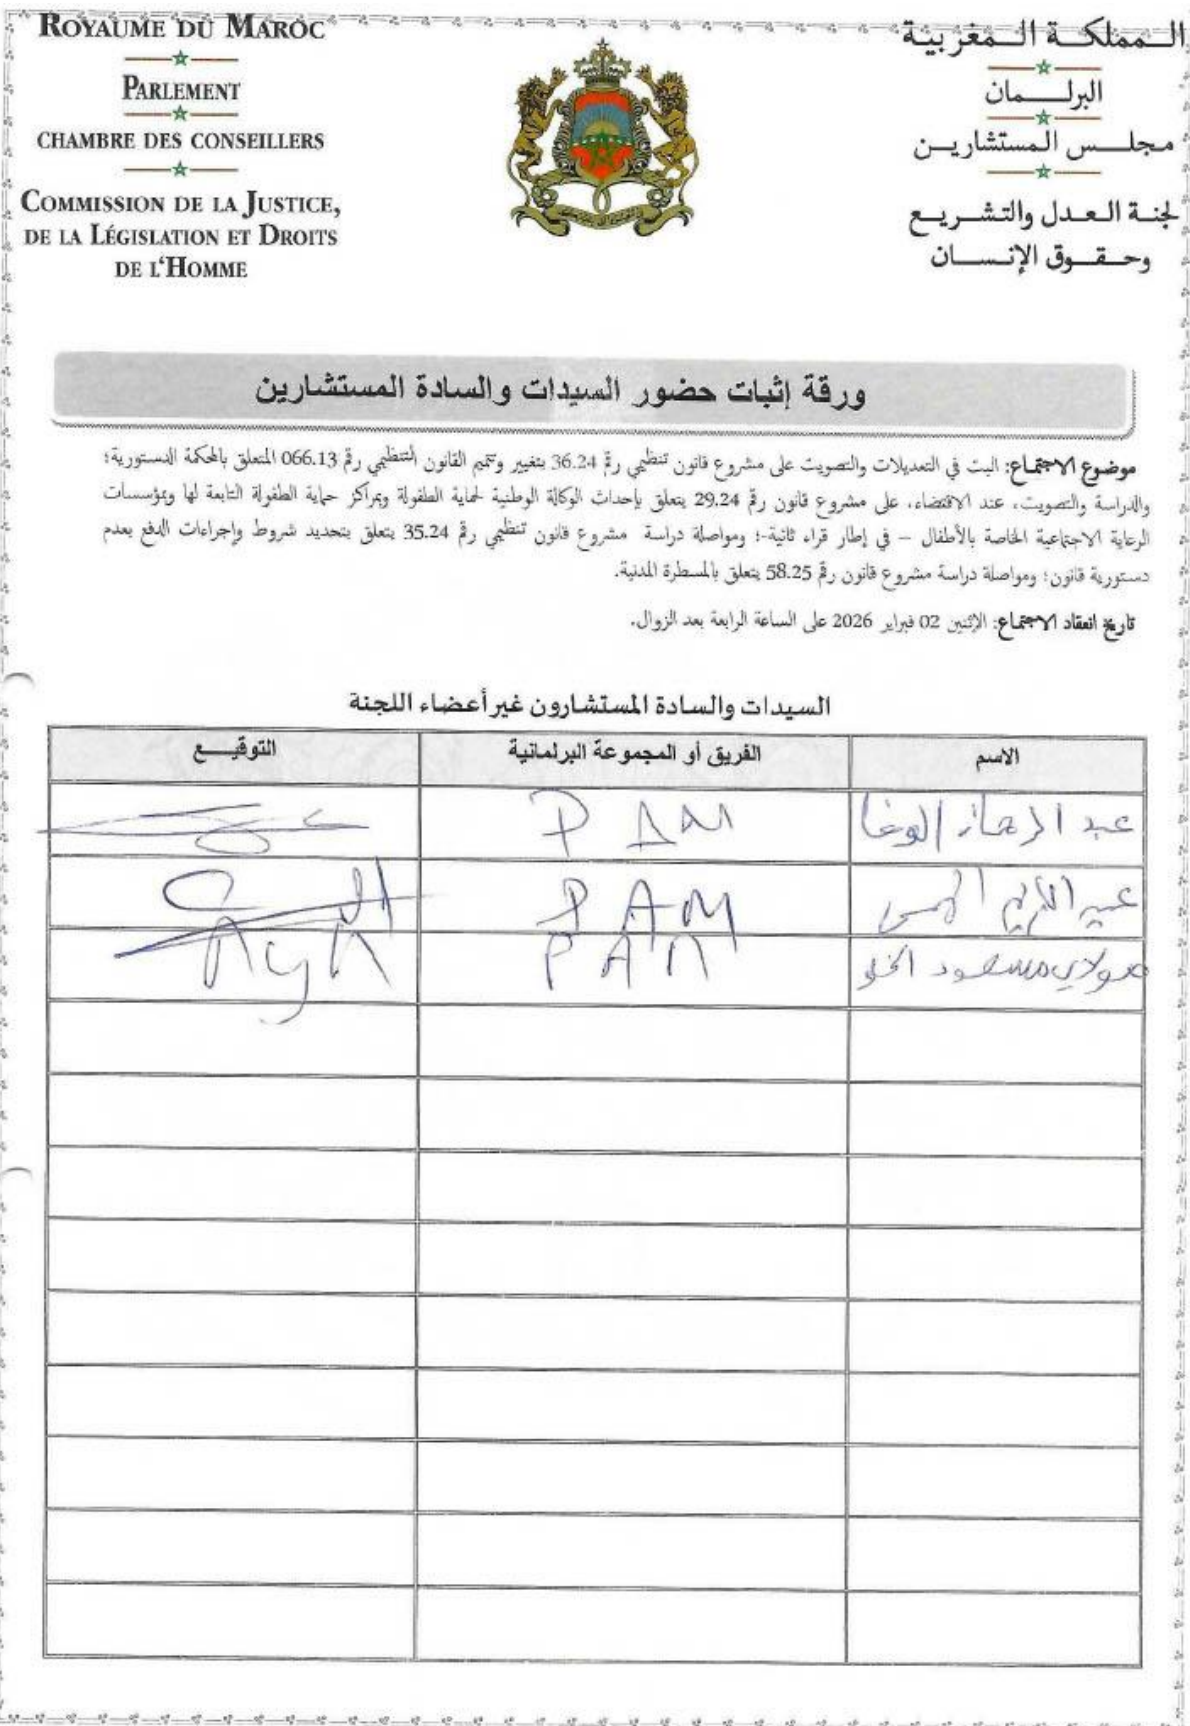 ROYAUME DU MAROC
PARLEMENT
CHAMBRE DES CONSEILLERS
COMMISSION DE LA JUSTICE,
DE LA LÉGISLATION ET DROITS
DE L'HOMME
المملكة المغربية
البرلمان
مجلس المستشارين
لجنة العدل والتشريع
وحقوق الإنسان
ورقة إثبات حضور السيدات والسادة المستشارين
موضوع الاجتماع: البت في التعديلات والتصويت على مشروع قانون تنظيمي رقم 36.24 بتغيير وتتميم القانون التنظيمي رقم 066.13 المتعلق بالمحكمة الدستورية؛
والدراسة والتصويت، عند الاقتضاء، على مشروع قانون رقم 29.24 يتعلق بإحداث الوكالة الوطنية لحماية الطفولة وبمراكز حماية الطفولة التابعة لها وبمؤسسات
الرعاية الاجتماعية الخاصة بالأطفال – في إطار قراء ثانية-؛ ومواصلة دراسة مشروع قانون تنظيمي رقم 35.24 يتعلق بتحديد شروط وإجراءات الدفع بعدم
دستورية قانون؛ ومواصلة دراسة مشروع قانون رقم 58.25 يتعلق بالمسطرة المدنية.
تاريخ انعقاد الاجتماع: الإثنين 02 فبراير 2026 على الساعة الرابعة بعد الزوال.
السيدات والسادة المستشارون غير أعضاء اللجنة
الاسم الفريق أو المجموعة البرلمانية التوقيع
عبد الرحمان الوفا PAM
عبد الكريم الهمس PAM
مولاي مسعود PAM